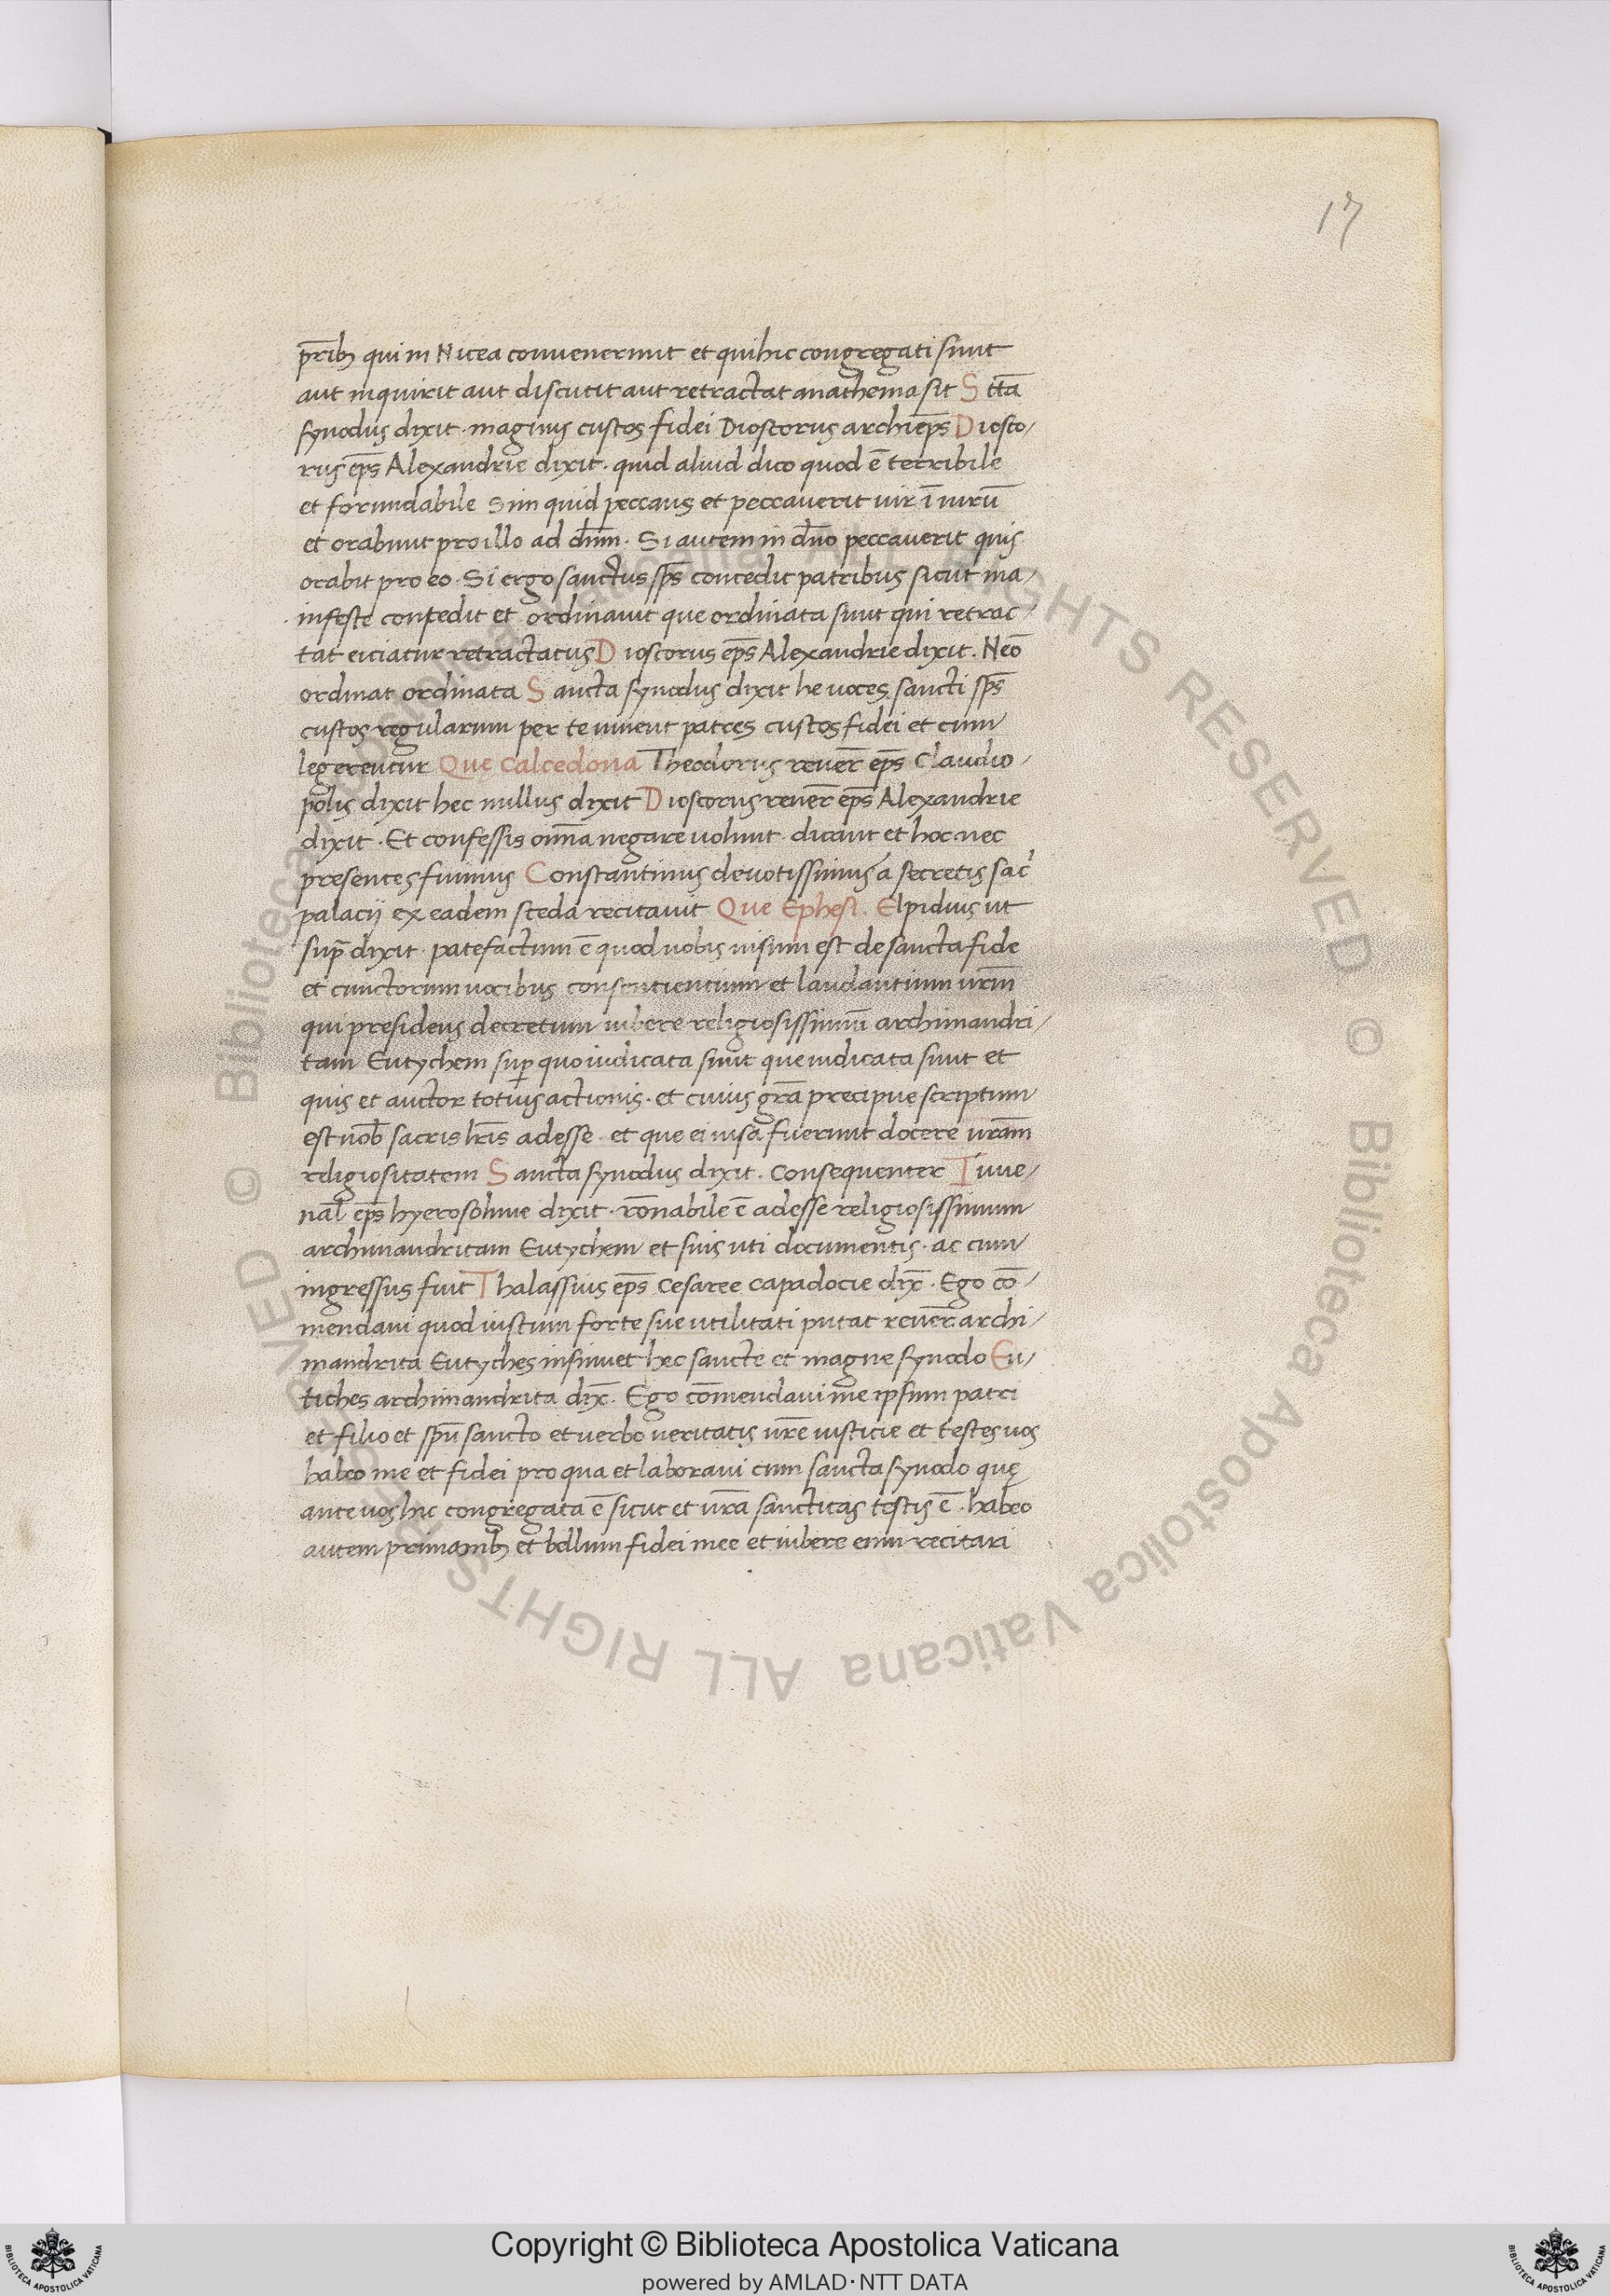 17
pr̄ib; qui in Nicea convenerunt et qui hic congregati sunt
aut inquirit aut discutit aut retractat anathema sit S cta
synodus dixit . magnus custos fidei Dioscorus archiep̄s Diosco/
rus ep̄s Alexandrie dixit . quid aliud dico quod ē terribile
et formidabile Sim quid peccans et peccaverit vir ī virū
et orabunt pro illo ad dn̄m . Si autem in dn̄o peccaverit quis
orabit pro eo . Si ergo sanctus sp̄s concedit patribus sicut ma/
nifeste concedit et ordinavit que ordinata sunt qui retrac/
tat eiciatur retractatus Dioscorus ep̄s Alexandrie dixit . Neō
ordinat ordinata Sancta synodus dixit he voces sancti sp̄s
custos regularum per te vivent patres custos fidei et cum
legerentur Quę Calcedona Theodorus rever̄ ep̄s Claudio/
polis dixit hec nullus dixit Dioscorus rever̄ ep̄s Alexandrie
dixit . Et confessis om̄a negare volunt dicant et hoc nec
presentes fuimus Constantinus devotissimus a secretis sac̄
palacij ex eadem sceda recitavit Que Ephesi . Elpidius ut
sup̄ dixit . patefactum ē quod vobis visum est de sancta fide
et cunctorum vocibus consentientium et laudantium vr̄m
qui presidens decretum iubere religiosissimū archimandri/
tam Eutychem super quo iudicata sunt que iudicata sunt et
quis et auctor totius actionis . et cuius gr̄a precipue scriptum
est vob̄ sacris lr̄is adesse . et que ei visa fuerunt docere vr̄am
religiositatem Sancta synodus dixit . Consequenter Iuve/
nal̄ ep̄s hyerosolime dixit . rōnabile ē adesse religiosissimum
archimandritam Eutychem et suis uti documentis . ac cum
ingressus fuit Thalassius ep̄s Cesaree Capadocie dix̄ . Ego cō/
mendavi quod iustum forte sue utilitati putat rever̄ archi/
mandrita Eutyches insinuet hec sancte et magne synodo Eu/
tiches archimandrita dix̄ . Ego cōmendavi me ipsum patri
et filio et sp̄u sancto et verbo veritatis vr̄e iusticie et testes vos
habeo me et fidei pro qua et laboravi cum sancta synodo quę
ante vos hic congregata ē sicut et vr̄a sanctitas testis ē . habeo
autem primanib; et bellum fidei mee et iubere enim recitari
© Biblioteca Apostolica Vaticana ALL RIGHTS RESERVED © Biblioteca Apostolica Vaticana ALL RIGHTS RESERVED
Copyright © Biblioteca Apostolica Vaticana
powered by AMLAD·NTT DATA
BIBLIOTECA APOSTOLICA VATICANA
BIBLIOTECA APOSTOLICA VATICANA